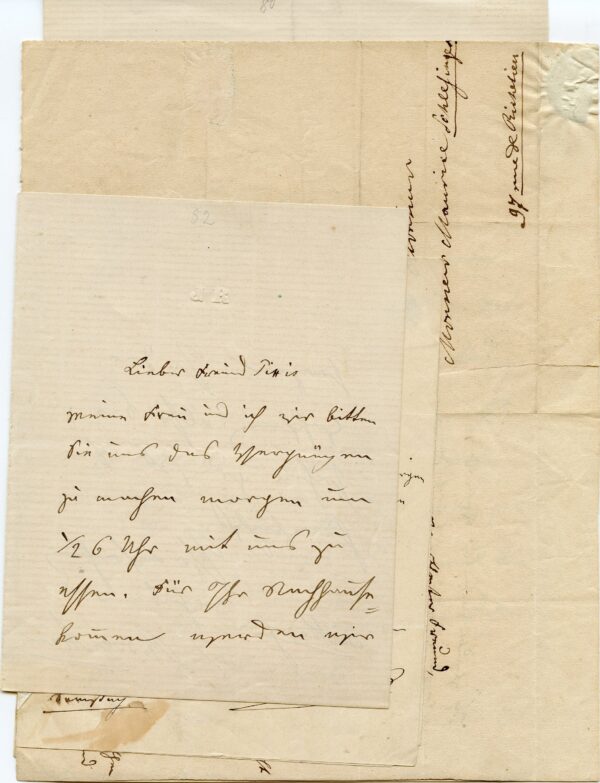 52
Lieber Freund Pixis
meine Frau und ich wir bitten
Sie uns das Vergnügen
zu machen morgen um
1/2 6 Uhr mit uns zu
essen. Für Ihr Nachhause=
kommen werden wir
Monsieur Maurice Schlesinger
97 rue de Richelieu
Samstag